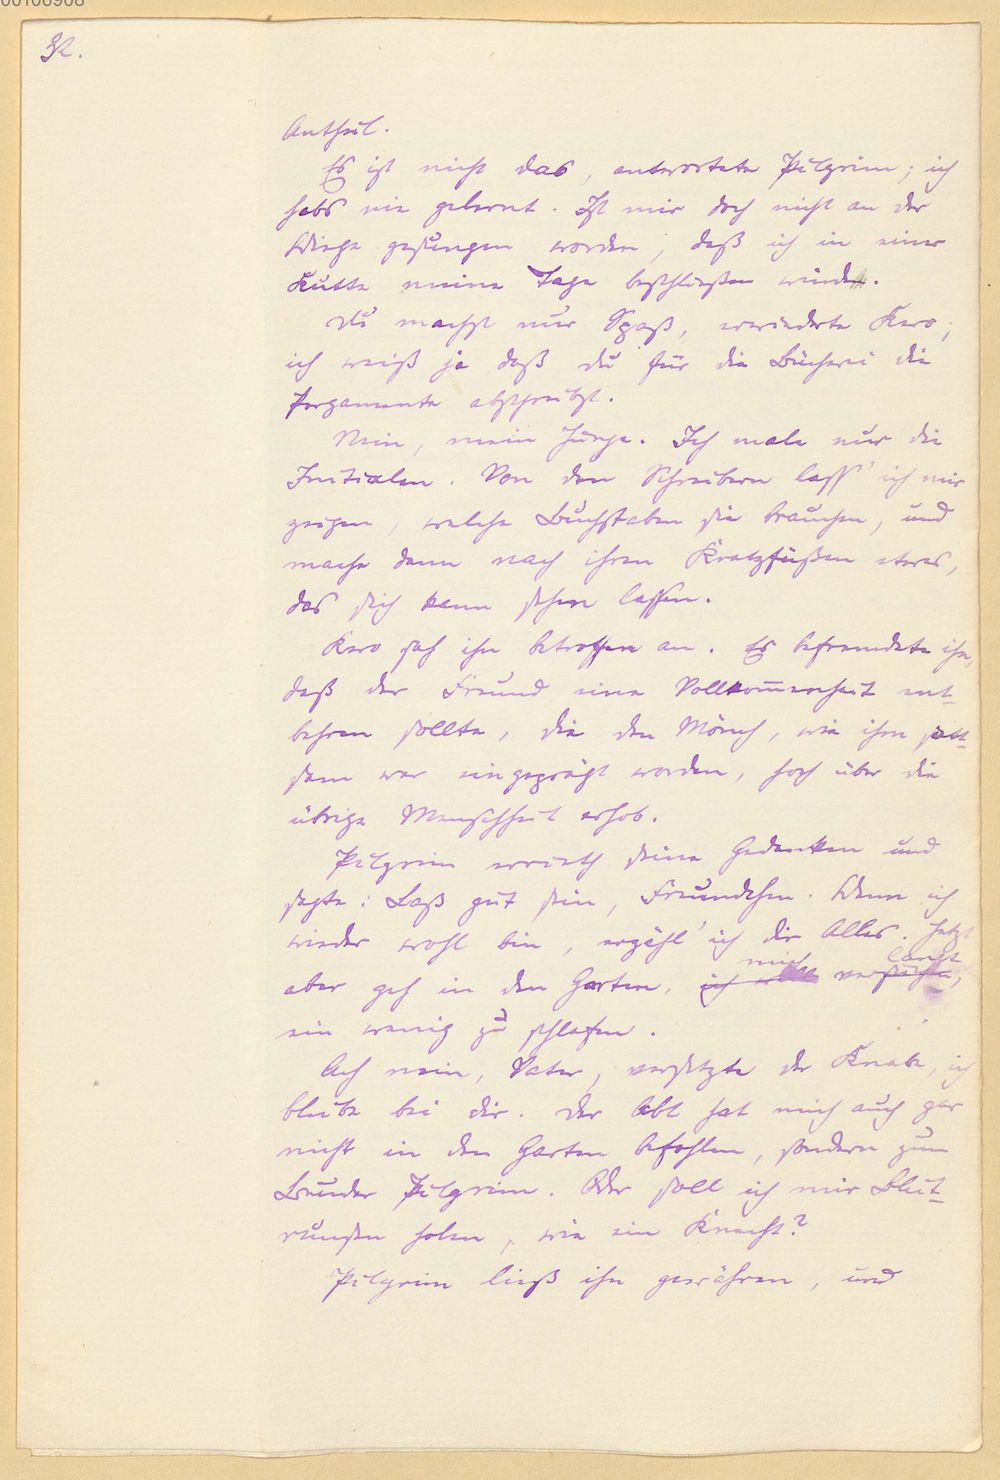 32.
Antheil.
Es ist nicht das, antwortete Pilgrim; ich
habs nie gelernt. Ist mir doch nicht an der
Wiege gesungen worden, daß ich in einer
Kutte meine Tage beschließen würde.
Du machst nur Spaß, erwiederte Kero;
ich weiß ja daß du für die Bücherei die
Pergamente abschreibst.
Nein, mein Junge. Ich male nur die
Initialen. Von den Schreibern lass' ich mir
zeigen, welche Buchstaben sie brauchen, und
mache dann nach ihren Kratzfüßen etwas,
das sich kann sehen lassen.
Kero sah ihn betroffen an. Es befremdete ihn,
daß der Freund eine Vollkommenheit ent-
behren sollte, die den Mönch, wie ihm satt-
sam war eingeprägt worden, hoch über die
übrige Menschheit erhob.
Pilgrim errieth seine Gedanken und
sagte: Laß gut sein, Freundchen. Wenn ich
wieder wohl bin, erzähl' ich dir Alles. Jetzt
mich längt
aber geh in den Garten, ich will versuchen,
ein wenig zu schlafen.
Ach nein, Vater, versetzte der Knabe, ich
bleibe bei dir. Der Abt hat mich auch gar
nicht in den Garten befohlen, sondern zum
Bruder Pilgrim. Oder soll ich mir Blut-
runsen holen, wie ein Knecht?
Pilgrim ließ ihn gewähren, und